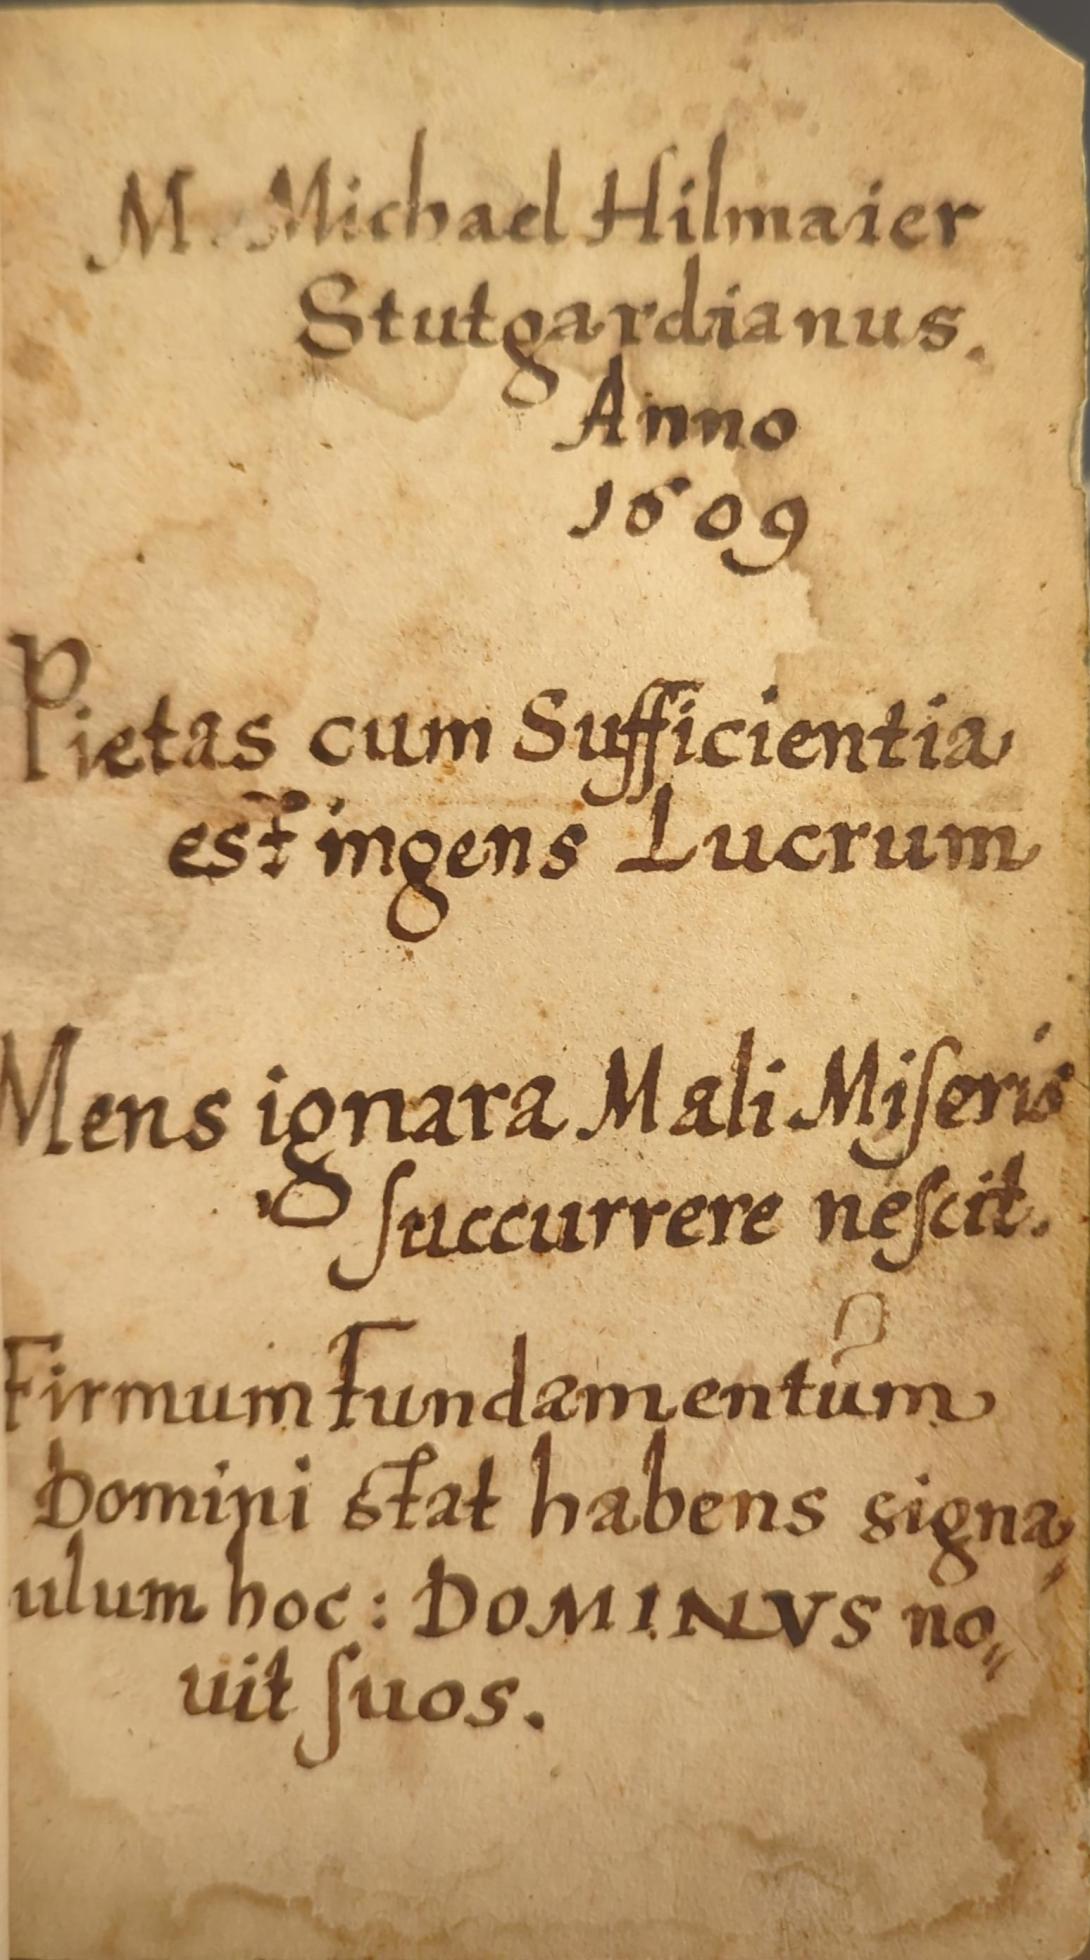 M. Michael Hilmaier
Stutgardianus.
Anno
1609
Pietas cum Sufficientia
est ingens Lucrum
Mens ignara Mali Miſeris
ſuccurrere neſcit.
Firmum Fundamentum
Domini stat habens signa„
ulum hoc: DOMINVS no„
uit ſuos.